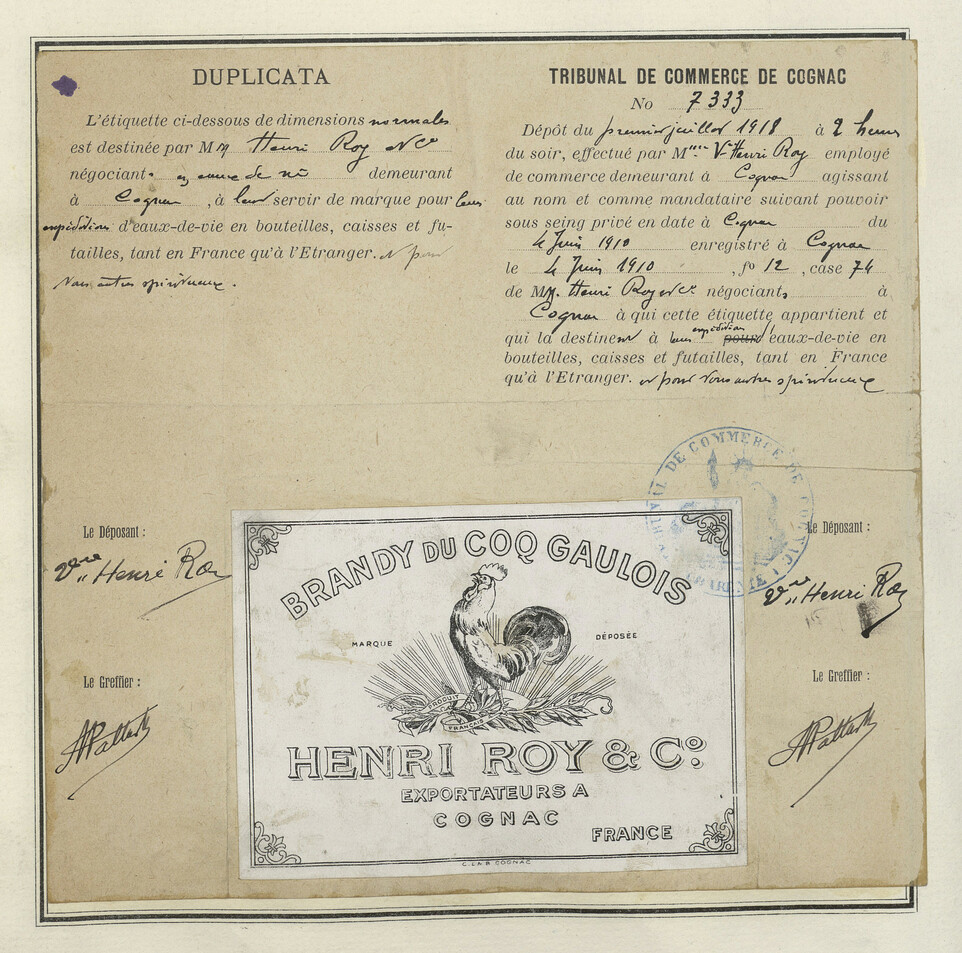 DUPLICATA
L'étiquette ci-dessous de dimensions normales
est destinée par MM Henri Roy & Cº
négociants en eaux de vie demeurant
à Cognac, à leur servir de marque pour leurs
expéditions d'eaux-de-vie en bouteilles, caisses et fu-
tailles, tant en France qu'à l'Etranger. et pour
tous autres spiritueux.
TRIBUNAL DE COMMERCE DE COGNAC
No 7333
Dépôt du premier juillet 1918 à 2 heures
du soir, effectué par Mme Vve Henri Roy employé
de commerce demeurant à Cognac agissant
au nom et comme mandataire suivant pouvoir
sous seing privé en date à Cognac du
4 Juin 1910 enregistré à Cognac
le 4 Juin 1910, fº 12, case 74
de MM. Henri Roy & Cº négociants à
Cognac à qui cette étiquette appartient et
qui la destinent à leurs expéditions pour d'eaux-de-vie en
bouteilles, caisses et futailles, tant en France
qu'à l'Etranger. et pour tous autres spiritueux
TRIBUNAL DE COMMERCE DE COGNAC
CHARENTE
Le Déposant :
Vve Henri Roy
Le Greffier :
Le Déposant :
Vve Henri Roy
Le Greffier :
BRANDY DU COQ GAULOIS
MARQUE DÉPOSÉE
PRODUIT
FRANÇAIS
HENRI ROY & Cº
EXPORTATEURS A
COGNAC
FRANCE
C. LAB COGNAC